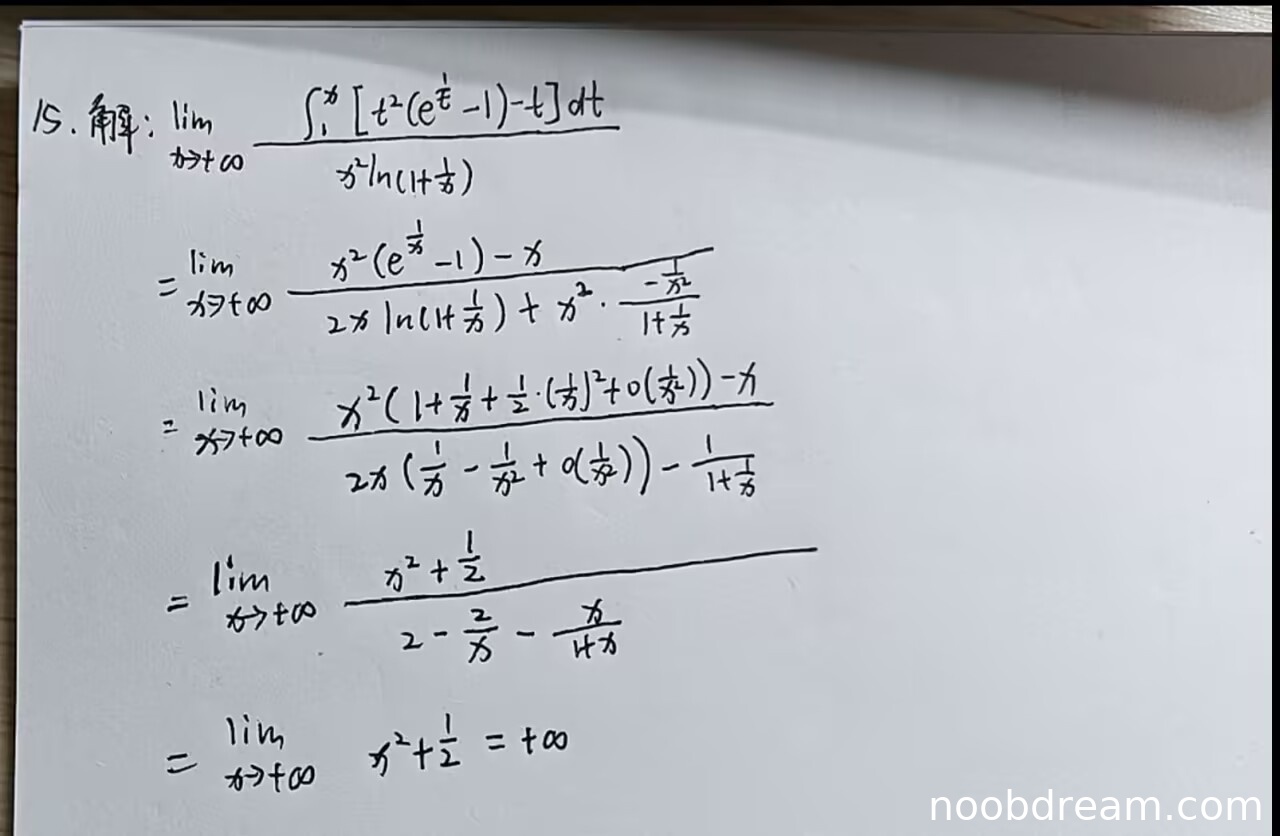 15. 解: lim_{x→+∞} \frac{∫_1^x [t²(e^{\frac{1}{t}} -1) - t] dt}{x² ln(1+\frac{1}{x})}
= lim_{x→+∞} \frac{x²(e^{\frac{1}{x}} -1) - x}{2x ln(1+\frac{1}{x}) + x² · \frac{-\frac{1}{x²}}{1+\frac{1}{x}}}
= lim_{x→+∞} \frac{x²(1+\frac{1}{x}+\frac{1}{2}·(\frac{1}{x})²+o(\frac{1}{x²})) - x}{2x(\frac{1}{x} - \frac{1}{x²} + o(\frac{1}{x²})) - \frac{1}{1+\frac{1}{x}}}
= lim_{x→+∞} \frac{x² + \frac{1}{2}}{2 - \frac{2}{x} - \frac{x}{1+x}}
= lim_{x→+∞} x² + \frac{1}{2} = +∞
noobdream.com